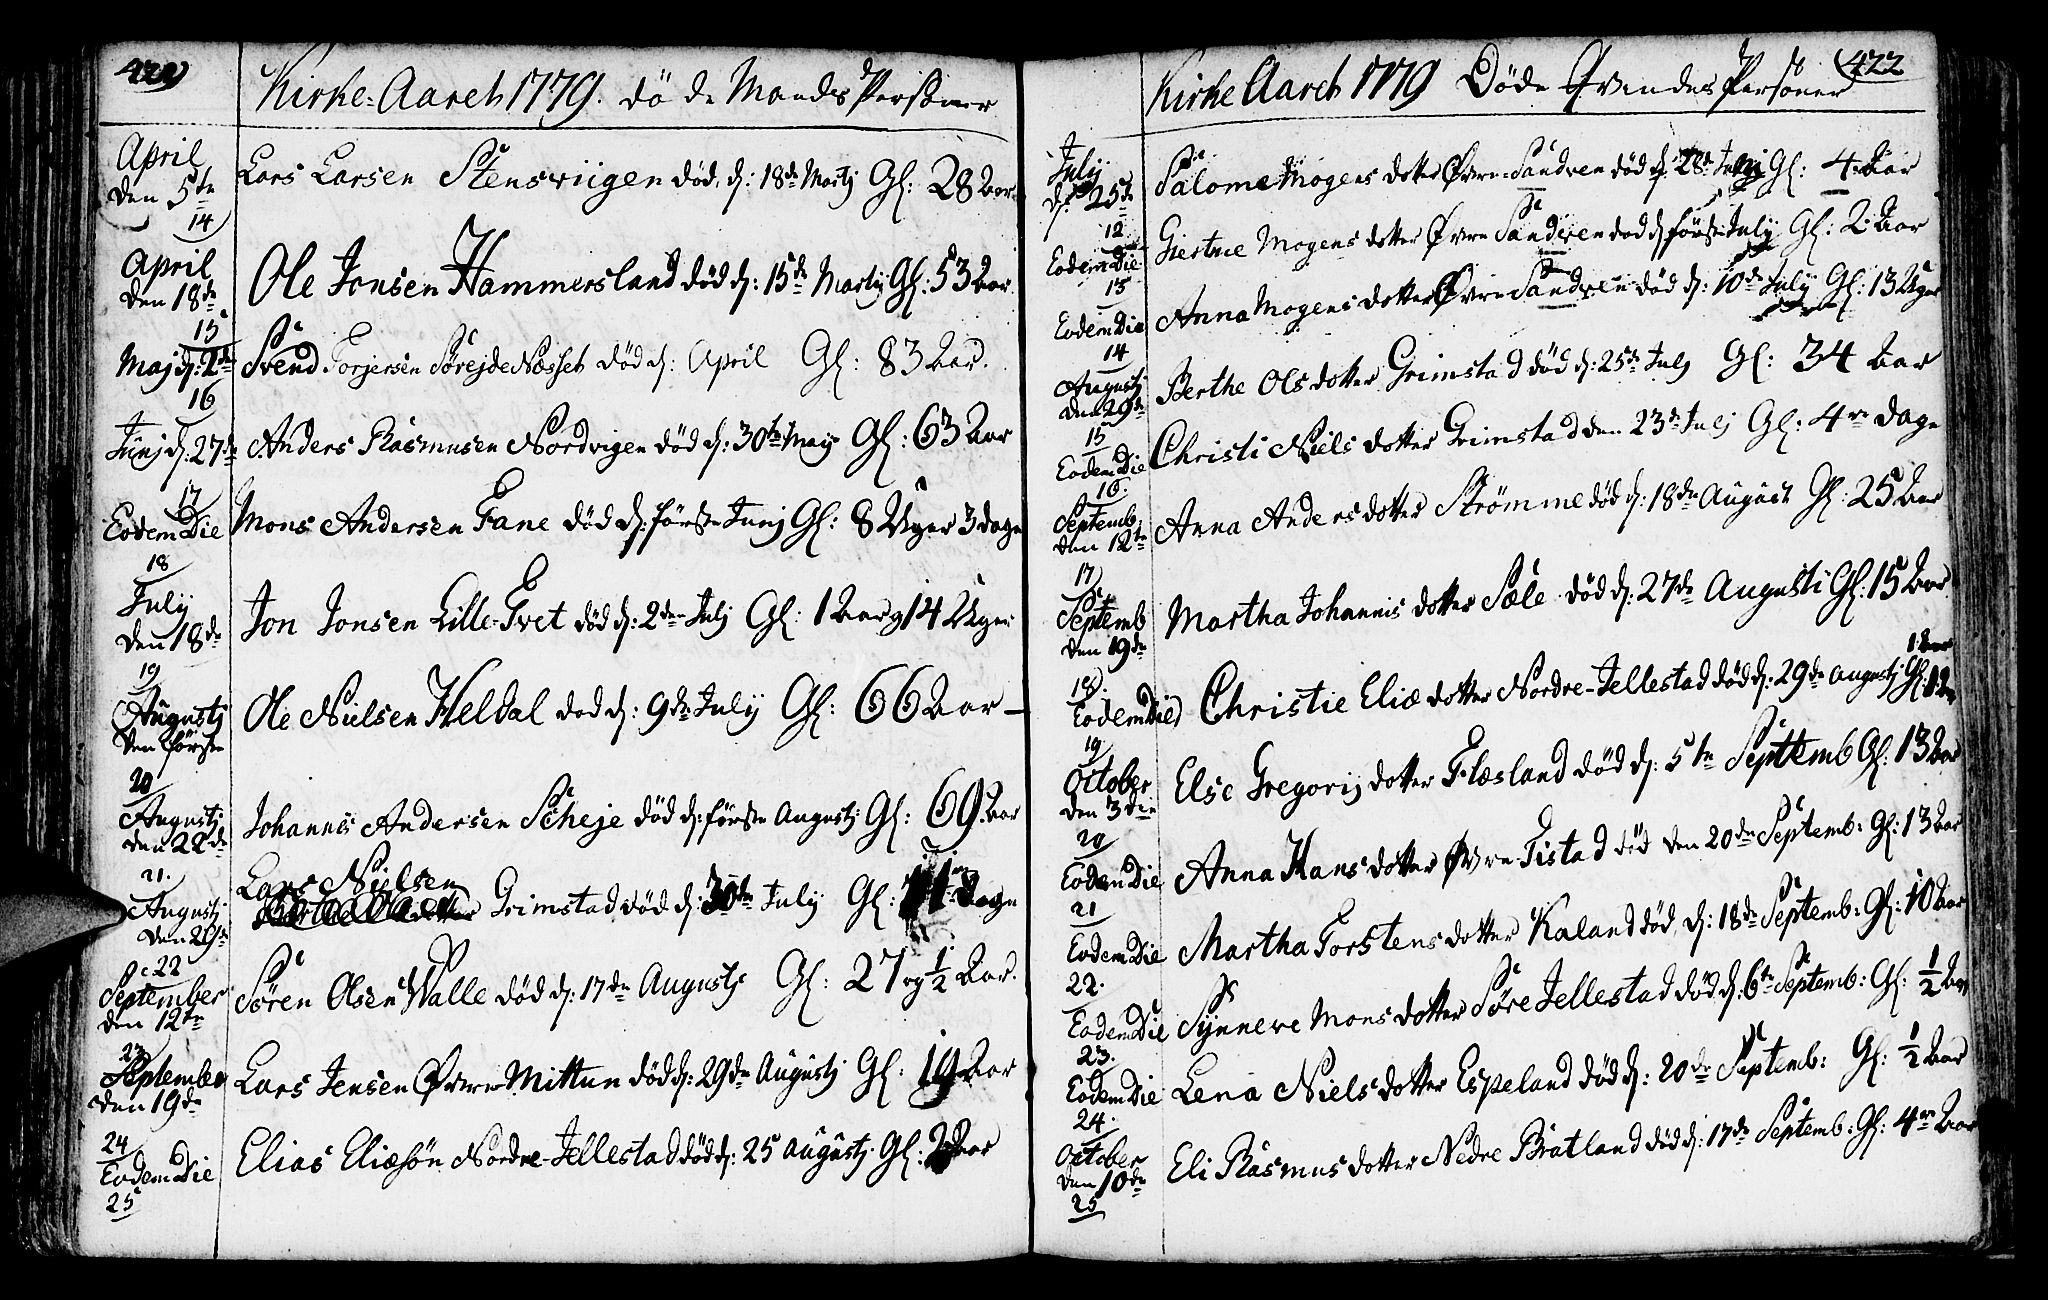 422
Kirke-Aaret 1779. döde Mands Personer
April
den 5te
14
Lars Larsen Stensviigen död, d: 18de Martj Gl: 28 Aar
April
den 18de
15
Ole Jonsen Hammersland död d: 15de Martij Gl: 53 Aar
Maj d: 2de
16
Svend Torjersen SørejdeNæsset död d: April Gl: 83 Aar.
Junj d: 27de
17
Anders Rasmusen Nordvigen död d: 30te Maij Gl: 63 Aar
Eodem Die
18
Mons Andersen Fane död d: förste Junj Gl: 8 Uger 3 dage
July
den 18de
19
Jon Jonsen Lille-Tvet död d: 2den Julj Gl: 1 Aar og 14 Uger
Augustj
den förste
20
Ole Nielsen Heldal död d: 9de July Gl: 66 Aar
Augustj
den 22de
21.
Johannes Andersen Scheje död d: förste Augustj Gl: 69. Aar
Augustj
den 29de
22
Lars Nielsen
Grimstad död d: 30te July Gl: 11 dage
September
den 12te
23
Sören Olsen Walle död d: 17de Augustj Gl: 27 og 1/2 Aar.
September
den 19de
24
Lars Jensen Øvre-Mittun död d: 29de Augustj Gl: 19 Aar
Eodem Die
25
Elias Eliæsön Nordre-Jellestad död d: 25 Augustj. Gl: 2 Aar
422
Kirke Aaret 1779 Döde Qvindes Personer
July
d: 25de
12
Salome Mogens dotter Øvre-Sandven död d: 28de Gl: 4 Aar
Eodem Die
13
Giertrue Mogens dotter Øvre Sandven död d: förste July Gl: 2 Aar
Eodem Die
14
Anna Mogens dotter Øvre Sandven död d: 10de July Gl: 13 Uger
Augustj
den 29de
15
Berthe Ols dotter Grimstad död d: 25de Julj Gl: 34 Aar
Eodem Die
16.
Christi Niels dotter Grimstad den 23de Julj Gl: 4re dage
Septemb:
den 12te
17
Anna Anders dotter Strömme död d: 18de August Gl: 25 Aar
Septemb
den 19de
18.
Martha Johannis dotter Sæle död d: 27de Augusti Gl: 15 Aar
1 Aar
Eodem Die
19
Christie Eliæ dotter Nordre-Jellestad död d: 29de Augustj Gl:
October
den 3die
20
Else Gregorij dotter Flæsland död d: 5te Septtemb Gl: 13 Aar
Eodem Die
21
Anna Hans dotter Øvre-Tistad död den 20de Septemb: Gl: 13 Aar
Eodem Die
22.
Martha Torstens dotter Kaland död, d: 18de Septemb: Gl: 10 Aar
Eodem Die
23.
Synneve Mons dotter Søre Jellestad död d: 6te Septemb: Gl: 1/2 Aar
Eodem Die
24.
Lena Niels dotter Espeland död d: 20de Septemb: Gl: 1/2 Aar
October
den 10de
25
Eli Rasmus dotter Nedre Bratland död d: 17de Septemb: Gl: 4re Aar